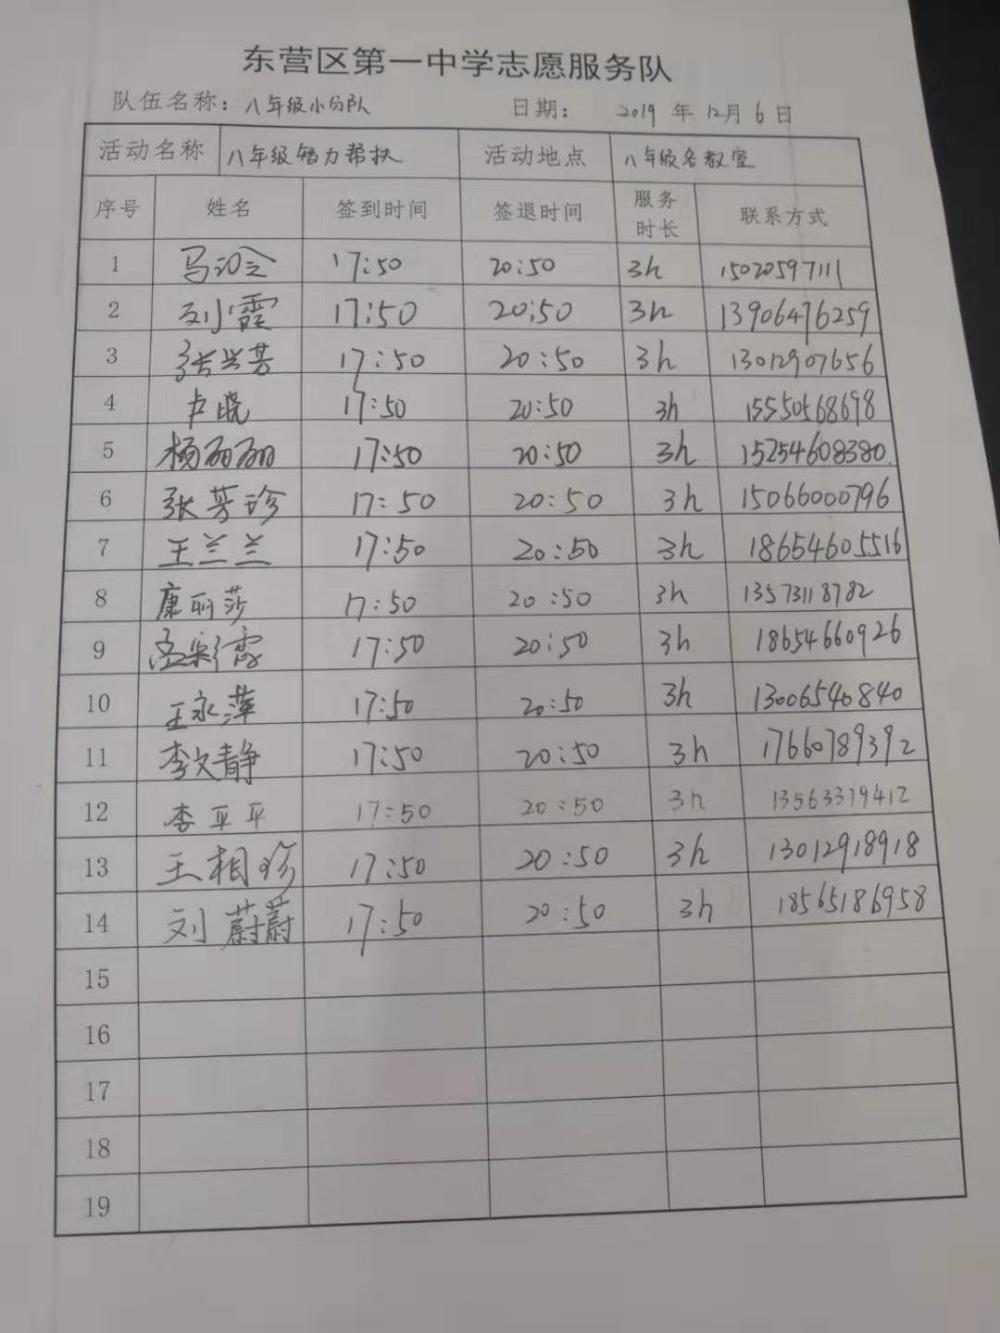 东营区第一中学志愿服务队
队伍名称：八年级小分队 日期： 2019 年 12月 6 日
活动名称 八年级智力帮扶 活动地点 八年级各教室
序号 姓名 签到时间 签退时间 服务时长 联系方式
1 马 17:50 20:50 3h 15020597111
2 刘霞 17:50 20:50 3h 13906476259
3 张兴芳 17:50 20:50 3h 13012907656
4 卢晓 17:50 20:50 3h 15550568698
5 杨丽丽 17:50 20:50 3h 15254608380
6 张芳珍 17:50 20:50 3h 15066000796
7 王兰兰 17:50 20:50 3h 18654605516
8 康丽莎 17:50 20:50 3h 13573118782
9 孟彩霞 17:50 20:50 3h 18654660926
10 王永萍 17:50 20:50 3h 13006540840
11 李文静 17:50 20:50 3h 17660789392
12 李平平 17:50 20:50 3h 13563379412
13 王相珍 17:50 20:50 3h 13012918918
14 刘蔚蔚 17:50 20:50 3h 18565186958
15
16
17
18
19